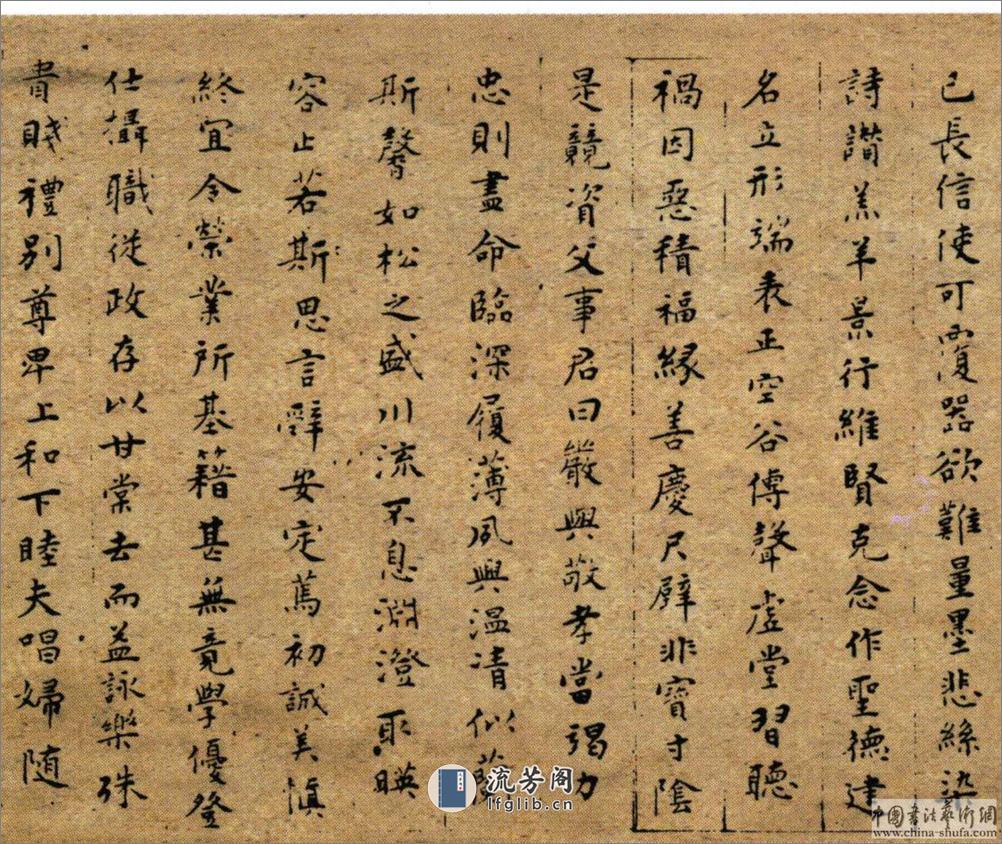 已長信使可覆器欲難量墨悲絲染
詩讃羔羊景行維賢克念作聖德建
名立形端表正空谷傳聲虛堂習聽
禍因惡積福緣善慶尺璧非寶寸陰
是競資父事君曰嚴與敬孝當竭力
忠則盡命臨深履薄夙興溫凊似蘭
斯馨如松之盛川流不息淵澄取暎
容止若斯思言辭安定篤初誠美慎
終宜令榮業所基籍甚無竟學優登
仕攝職從政存以甘棠去而益詠樂殊
貴賤禮別尊卑上和下睦夫唱婦隨
流芳阁
lfglib.cn
中国书法艺术網
www.china-shufa.com